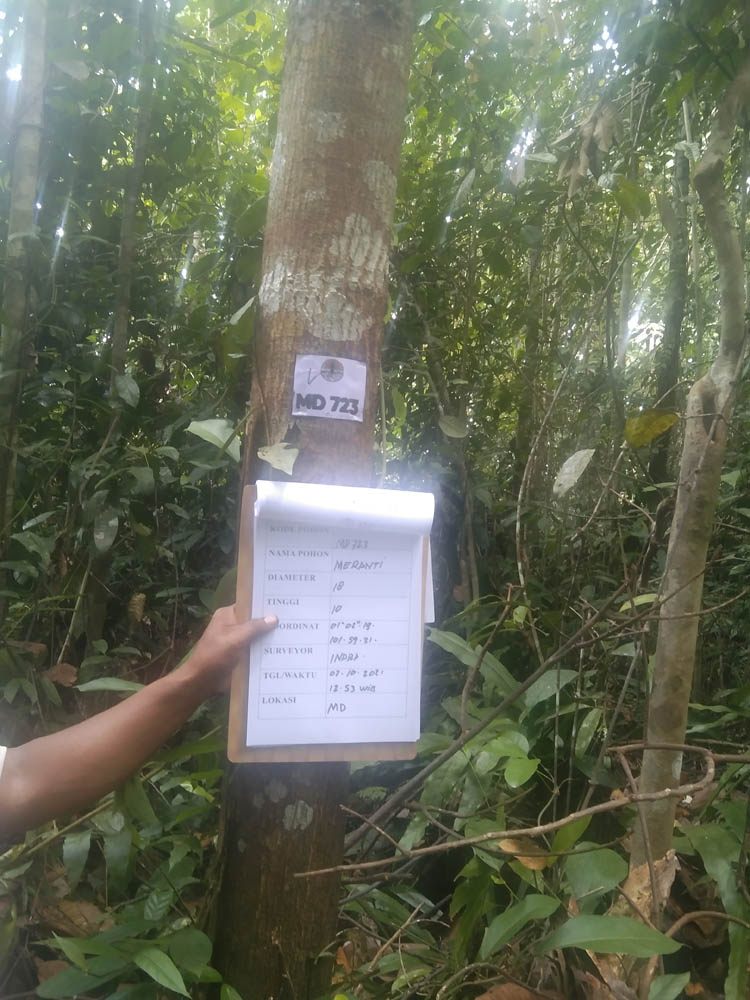 MD 723
KODE POHON MD723
NAMA POHON MERANTI
DIAMETER 18
TINGGI 10
OORDINAT 01° 02" 19.
101. 59. 31.
SURVEYOR INDRA
TGL/WAKTU 07.10.202
12.53 WIB
LOKASI MD